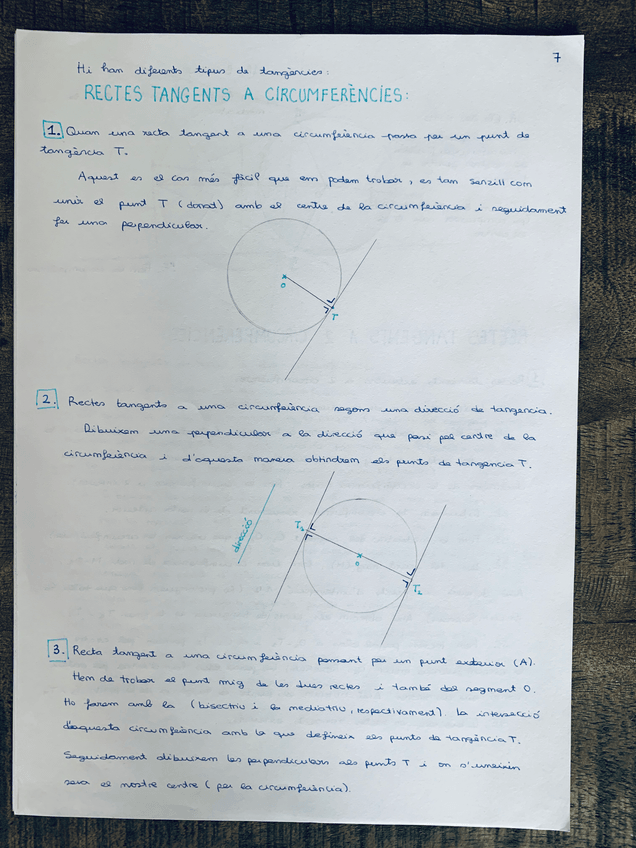 7
Hi han diferents tipus de tangències:
RECTES TANGENTS A CIRCUMFERÈNCIES:
1. Quan una recta tangent a una circumferència passa per un punt de
tangència T.
Aquest es el cas més fàcil que em podem trobar, es tan senzill com
unir el punt T (donat) amb el centre de la circumferència i seguidament
fer una perpendicular.
O
T
2. Rectes tangents a una circumferència segons una direcció de tangencia.
Dibuixem una perpendicular a la direcció que pasi pel centre de la
circumferència i d'aquesta manera obtindrem els punts de tangencia T.
direcció
T1
O
T2
3. Recta tangent a una circumferència passant per un punt exterior (A).
Hem de trobar el punt mig de les dues rectes i també del segment O.
Ho farem amb la (bisectriu i la mediatriu, respectivament). La intersecció
d'aquesta circumferència amb la que defineix els punts de tangència T.
Seguidament dibuixem les perpendiculars als punts T i on s'uneixin
sera el nostre centre (per la circumferència).